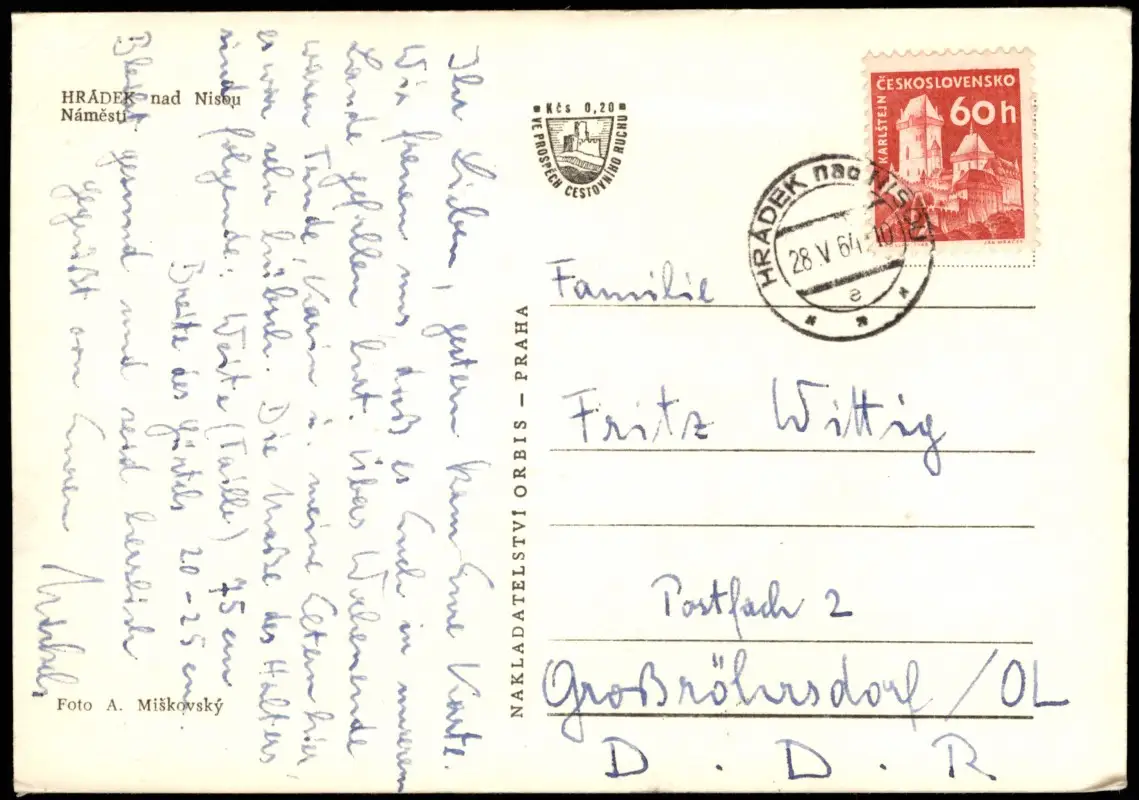 HRÁDEK nad Nisou
Náměstí
Ihr Lieben, gestern kam Eure Karte.
Wir freuen uns, daß es Euch in unserem
Lande gefallen hat. Übers Wochenende
waren Tünde, Karin u. meine Eltern hier
es war sehr hübsch. Die Maße des Halters
sind folgende: Weite (Taille) 75 cm
Breite des Gürtels 20-25 cm.
Bleibt gesund und seid herzlich
gegrüßt von Euren
Foto A. Miškovský
NAKLADATELSTVÍ ORBIS — PRAHA
Kčs 0,20
VE PROSPĚCH CESTOVNÍHO RUCHU
ČESKOSLOVENSKO
60h
KARLŠTEJN
HRÁDEK nad NISOU
28 V 64-10
e
Familie
Fritz Wittig
Postfach 2
Großröhrsdorf / OL
D. D. R